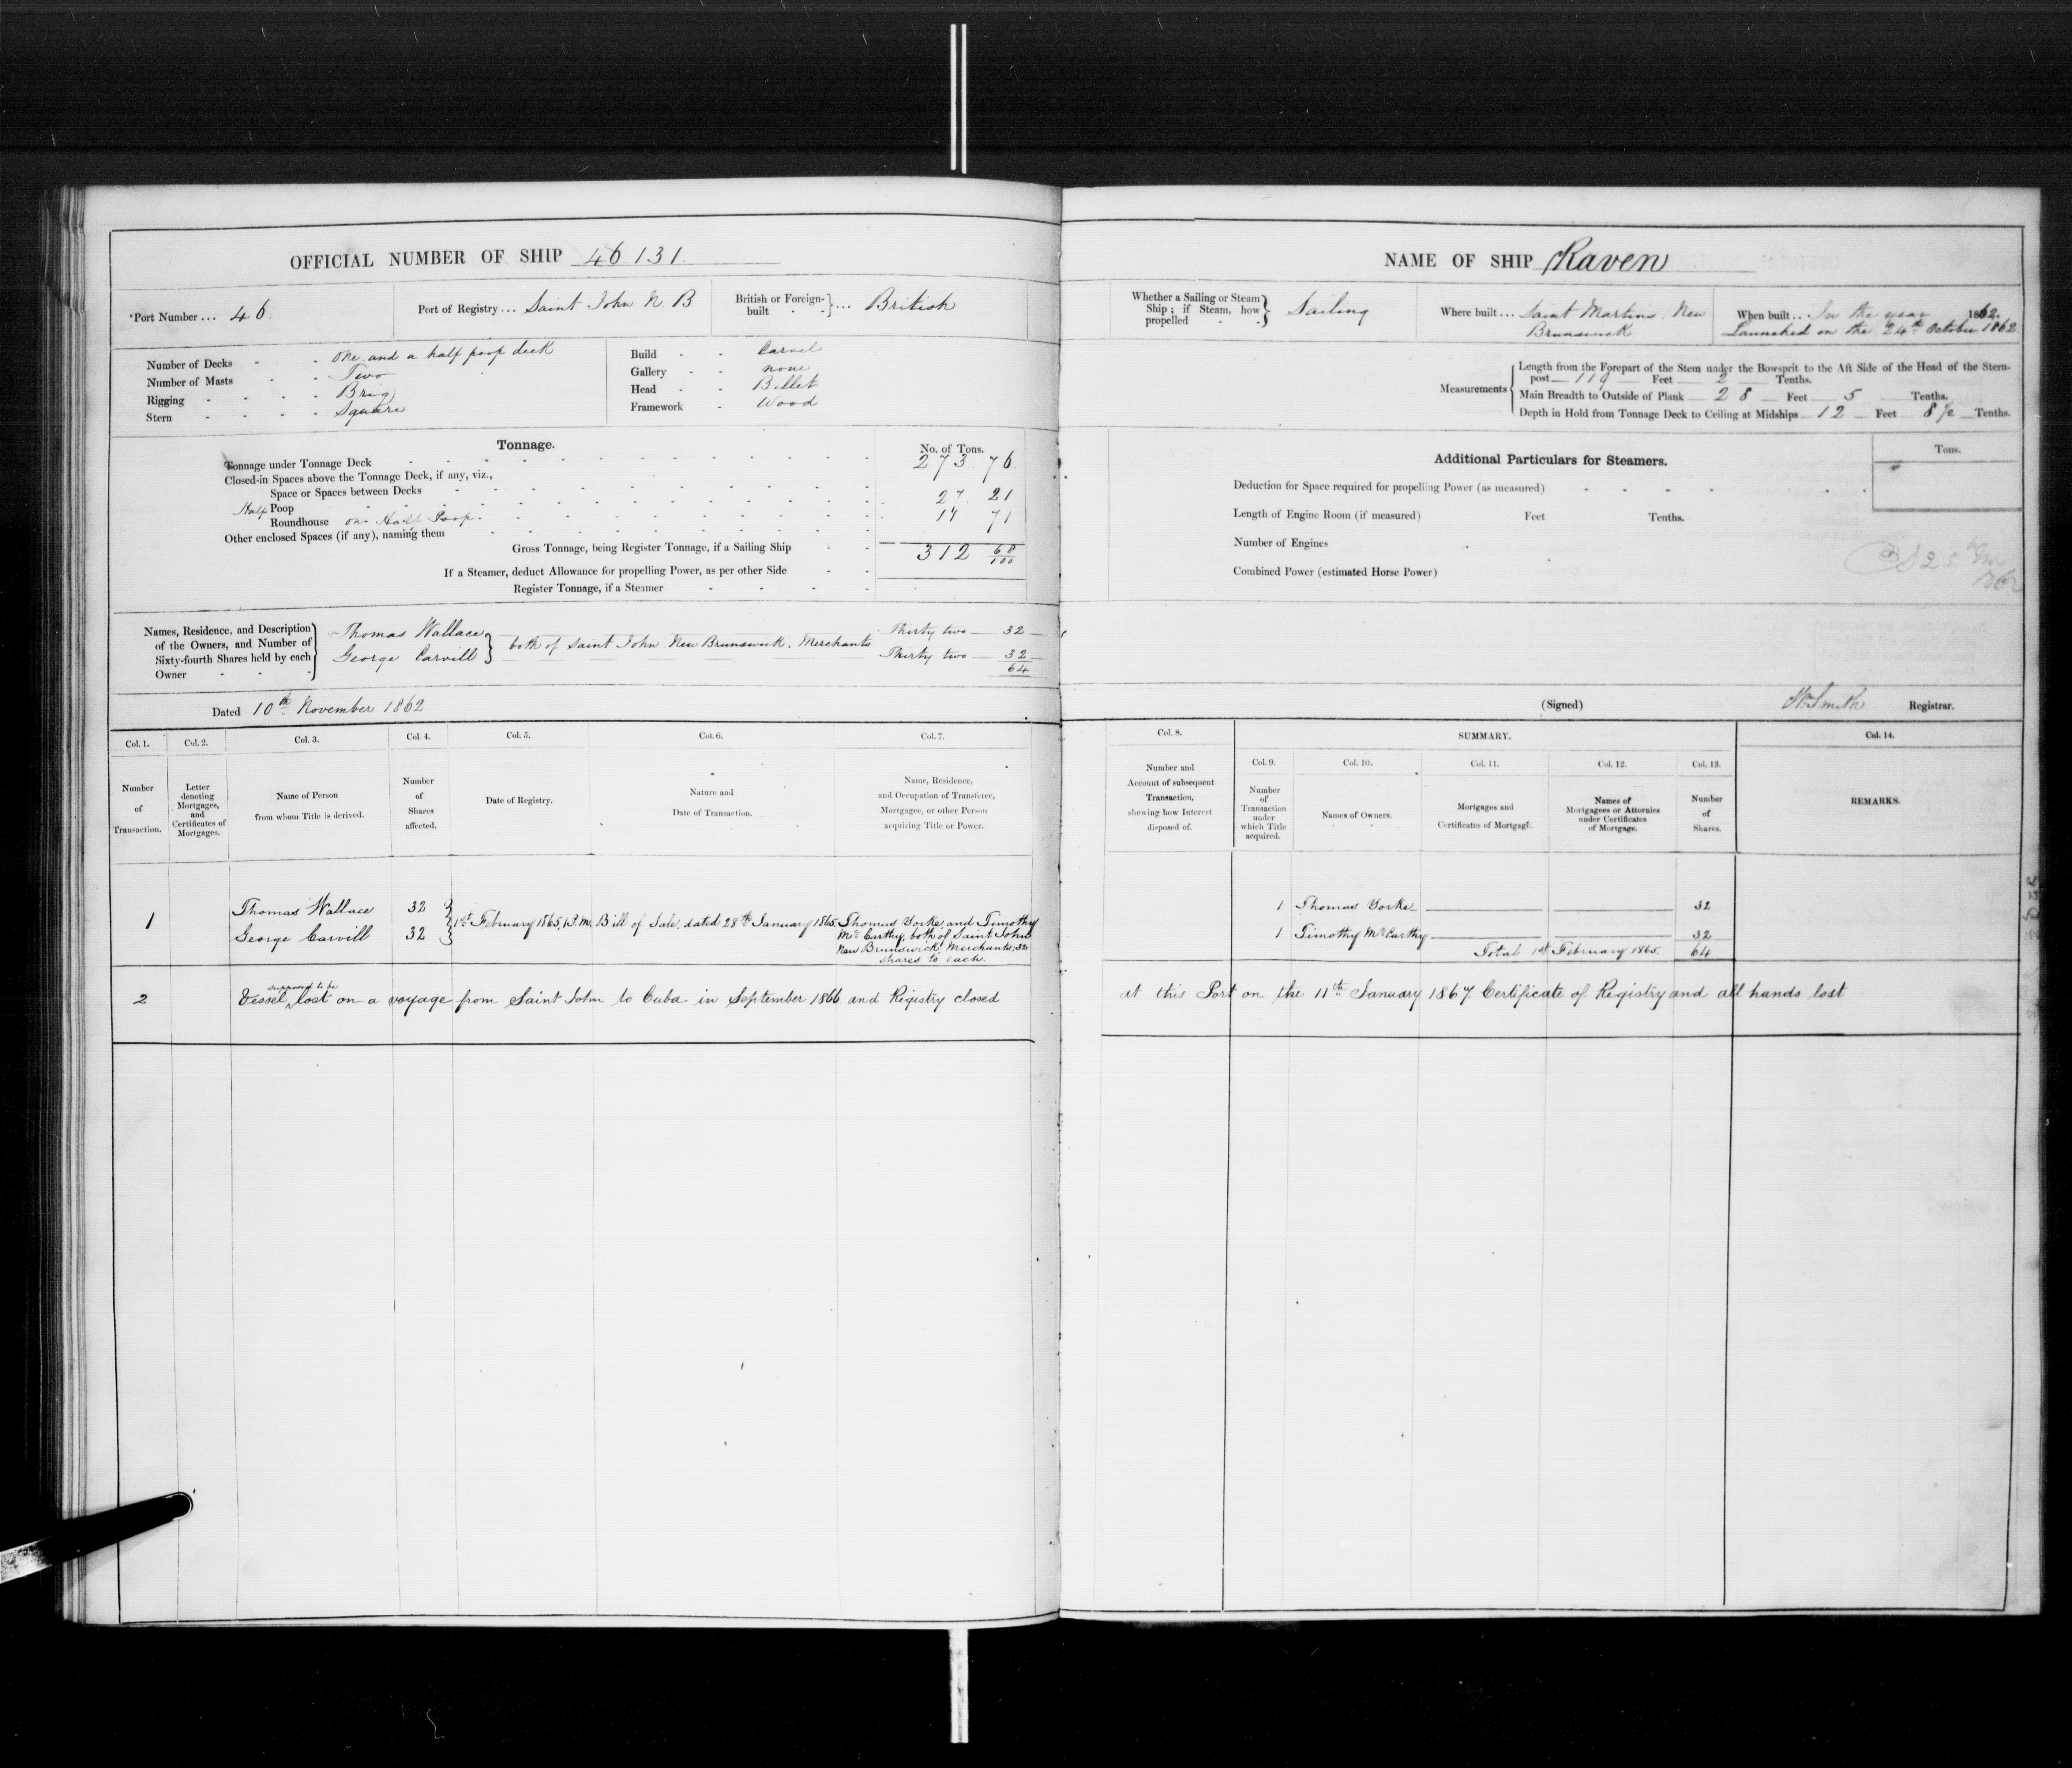 OFFICIAL NUMBER OF SHIP 46131
Port Number ... 46
Port of Registry ... Saint John N. B
British or Foreign-built } ... British
Number of Decks - - one and a half poop deck
Number of Masts - - Two
Rigging - - - - Brig
Stern - - - - Square
Build - - Carvel
Gallery - - none
Head - - Billet
Framework - Wood
Tonnage.
No. of Tons.
Tonnage under Tonnage Deck 273.76
Closed-in Spaces above the Tonnage Deck, if any, viz.,
Space or Spaces between Decks
Half Poop 27.21
Roundhouse on Half Poop 11 71
Other enclosed Spaces (if any), naming them
Gross Tonnage, being Register Tonnage, if a Sailing Ship 312 68/100
If a Steamer, deduct Allowance for propelling Power, as per other Side
Register Tonnage, if a Steamer
Names, Residence, and Description of the Owners, and Number of Sixty-fourth Shares held by each Owner
Thomas Wallace } Thirty two — 32 —
George Carvill } both of Saint John New Brunswick. Merchants Thirty two — 32 —
64
Dated 10th November 1862
Col. 1. Col. 2. Col. 3. Col. 4. Col. 5. Col. 6. Col. 7.
Number of Transaction.
Letter denoting Mortgages, and Certificates of Mortgages.
Name of Person from whom Title is derived.
Number of Shares affected.
Date of Registry.
Nature and Date of Transaction.
Name, Residence, and Occupation of Transferee, Mortgagee, or other Person acquiring Title or Power.
1
Thomas Wallace 32
George Carvill 32
1st February 1865, 1 P.m. Bill of Sale, dated 28th January 1865. Thomas Yorke and Timothy
McCarthy, both of Saint John
New Brunswick, Merchants, 32
shares to each.
supposed to be
2 Vessel lost on a voyage from Saint John to Cuba in September 1866 and Registry closed
NAME OF SHIP Raven
Whether a Sailing or Steam Ship; if Steam, how propelled } Sailing
Where built ... Saint Martins, New
Brunswick
When built .. In the year 1862.
Launched on the 24th October 1862
Measurements
Length from the Forepart of the Stem under the Bowsprit to the Aft Side of the Head of the Stern-
post — 119 — Feet — 2 — Tenths.
Main Breadth to Outside of Plank — 28 — Feet — 5 Tenths.
Depth in Hold from Tonnage Deck to Ceiling at Midships — 12 — Feet — 8½ — Tenths.
Additional Particulars for Steamers.
Tons.
Deduction for Space required for propelling Power (as measured)
Length of Engine Room (if measured) Feet Tenths.
Number of Engines
Combined Power (estimated Horse Power)
(Signed) Wm Smith Registrar.
Col. 8. SUMMARY. Col. 14.
Col. 9. Col. 10. Col. 11. Col. 12. Col. 13.
Number and Account of subsequent Transaction, showing how Interest disposed of.
Number of Transaction under which Title acquired.
Names of Owners.
Mortgages and Certificates of Mortgage.
Names of Mortgagees or Attornies under Certificates of Mortgage.
Number of Shares.
REMARKS.
1 Thomas Yorke 32
1 Timothy McCarthy 32
Total 1st February 1865. 64
at this Port on the 11th January 1867. Certificate of Registry and all hands lost